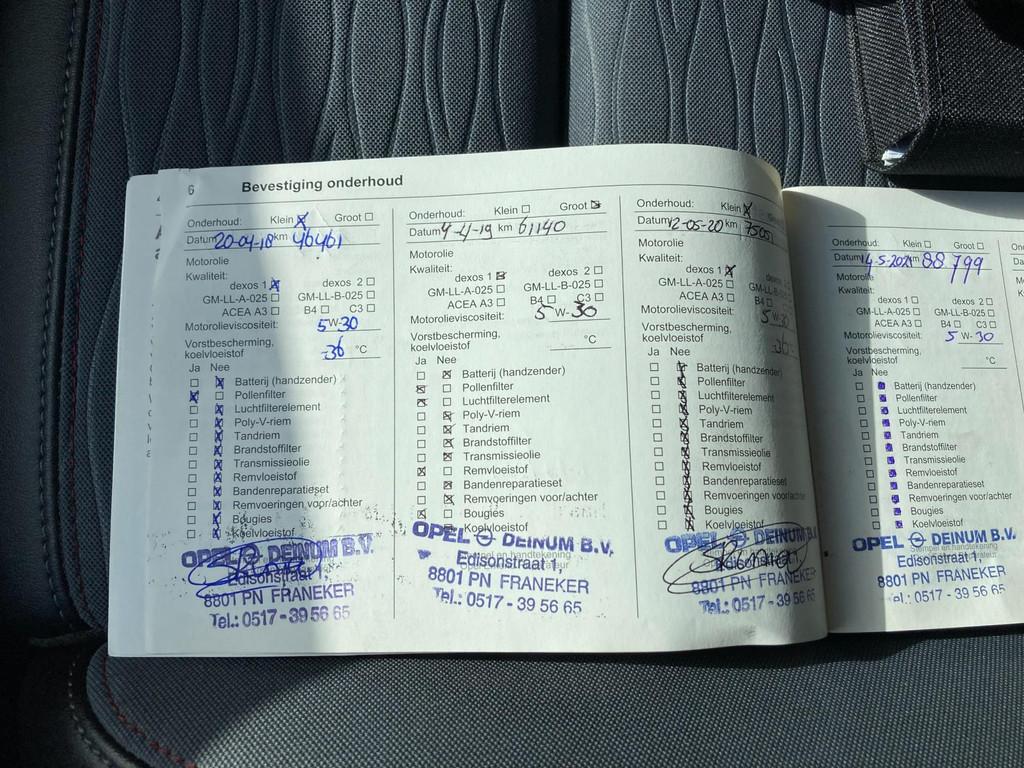 6 Bevestiging onderhoud
Onderhoud: Klein Groot
Datum 20-04-18 km 46461
Motorolie
Kwaliteit:
dexos 1 dexos 2
GM-LL-A-025 GM-LL-B-025
ACEA A3 B4 C3
Motorolieviscositeit: 5W-30
Vorstbescherming,
koelvloeistof -36 °C
Ja Nee
Batterij (handzender)
Pollenfilter
Luchtfilterelement
Poly-V-riem
Tandriem
Brandstoffilter
Transmissieolie
Remvloeistof
Bandenreparatieset
Remvoeringen voor/achter
Bougies
Koelvloeistof
OPEL DEINUM B.V.
Edisonstraat 1,
8801 PN FRANEKER
Tel.: 0517 - 39 56 65
Onderhoud: Klein Groot
Datum 4-4-19 km 61140
Motorolie
Kwaliteit:
dexos 1 dexos 2
GM-LL-A-025 GM-LL-B-025
ACEA A3 B4 C3
Motorolieviscositeit: 5W-30
Vorstbescherming,
koelvloeistof °C
Ja Nee
Batterij (handzender)
Pollenfilter
Luchtfilterelement
Poly-V-riem
Tandriem
Brandstoffilter
Transmissieolie
Remvloeistof
Bandenreparatieset
Remvoeringen voor/achter
Bougies
Koelvloeistof
OPEL DEINUM B.V.
Edisonstraat 1,
8801 PN FRANEKER
Tel.: 0517 - 39 56 65
Onderhoud: Klein Groot
Datum 12-05-20 km 75051
Motorolie
Kwaliteit:
dexos 1 dexos 2
GM-LL-A-025 GM-LL-B-025
ACEA A3 B4 C3
Motorolieviscositeit: 5W-30
Vorstbescherming,
koelvloeistof -30 °C
Ja Nee
Batterij (handzender)
Pollenfilter
Luchtfilterelement
Poly-V-riem
Tandriem
Brandstoffilter
Transmissieolie
Remvloeistof
Bandenreparatieset
Remvoeringen voor/achter
Bougies
Koelvloeistof
OPEL DEINUM B.V.
Edisonstraat 1,
8801 PN FRANEKER
Tel.: 0517 - 39 56 65
Onderhoud: Klein Groot
Datum 14-5-2021 km 88799
Motorolie
Kwaliteit:
dexos 1 dexos 2
GM-LL-A-025 GM-LL-B-025
ACEA A3 B4 C3
Motorolieviscositeit: 5W-30
Vorstbescherming,
koelvloeistof °C
Ja Nee
Batterij (handzender)
Pollenfilter
Luchtfilterelement
Poly-V-riem
Tandriem
Brandstoffilter
Transmissieolie
Remvloeistof
Bandenreparatieset
Remvoeringen voor/achter
Bougies
Koelvloeistof
OPEL DEINUM B.V.
Stempel en handtekening
Edisonstraat 1,
8801 PN FRANEKER
Tel.: 0517 - 39 56 65